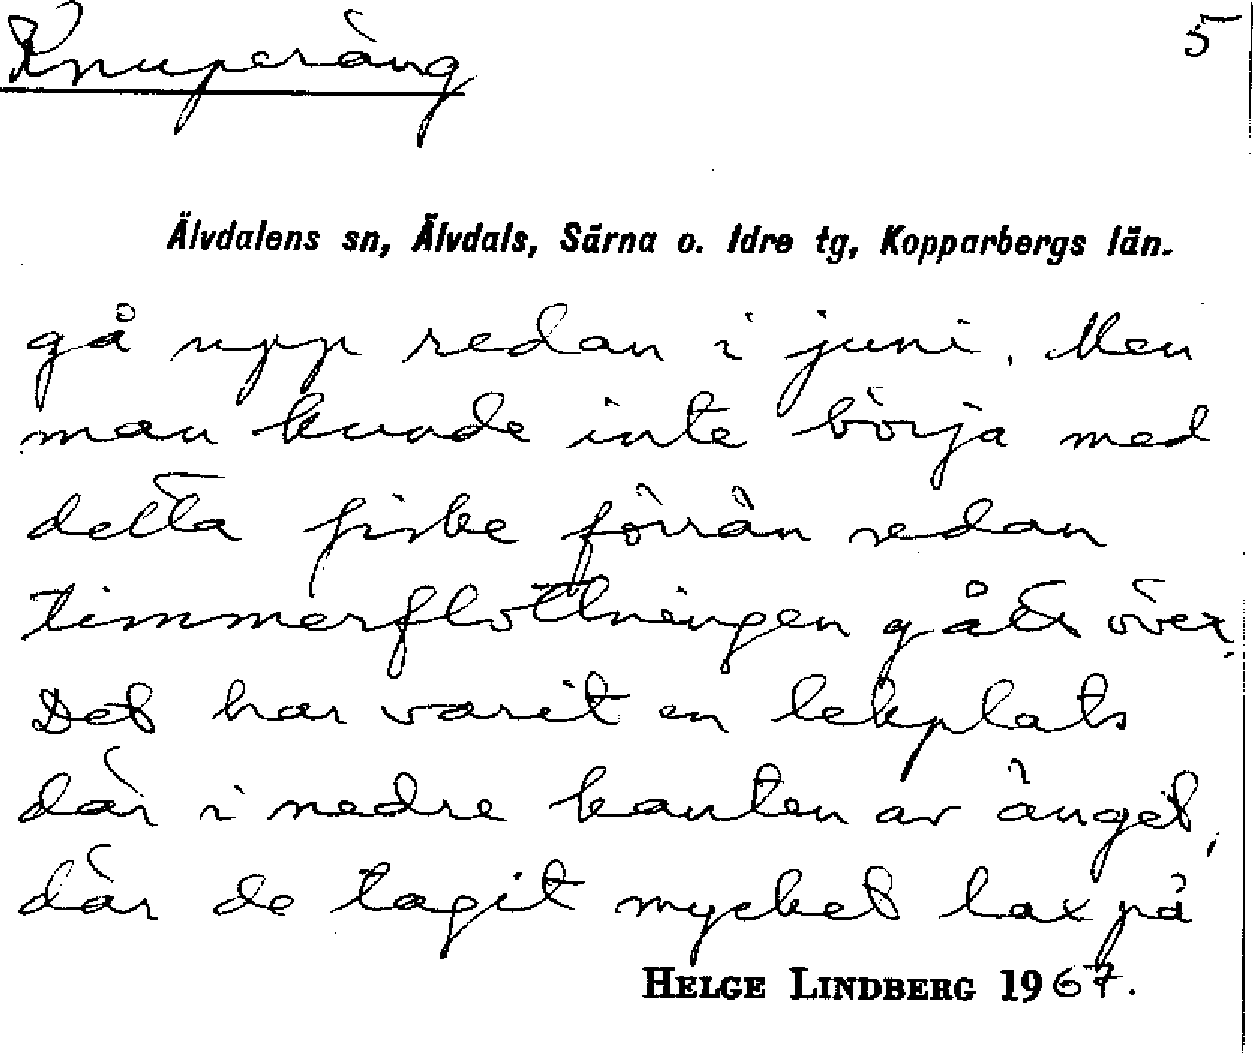 Knuperäng 5
Älvdalens sn, Älvdals, Särna o. Idre tg, Kopparbergs län.
gå upp redan i juni. Men
man kunde inte börja med
detta fiske förrän sedan
timmerflottningen gått över.
Det har varit en lekplats
där i nedre kanten av änget,
där de tagit mycket lax på
HELGE LINDBERG 1967.